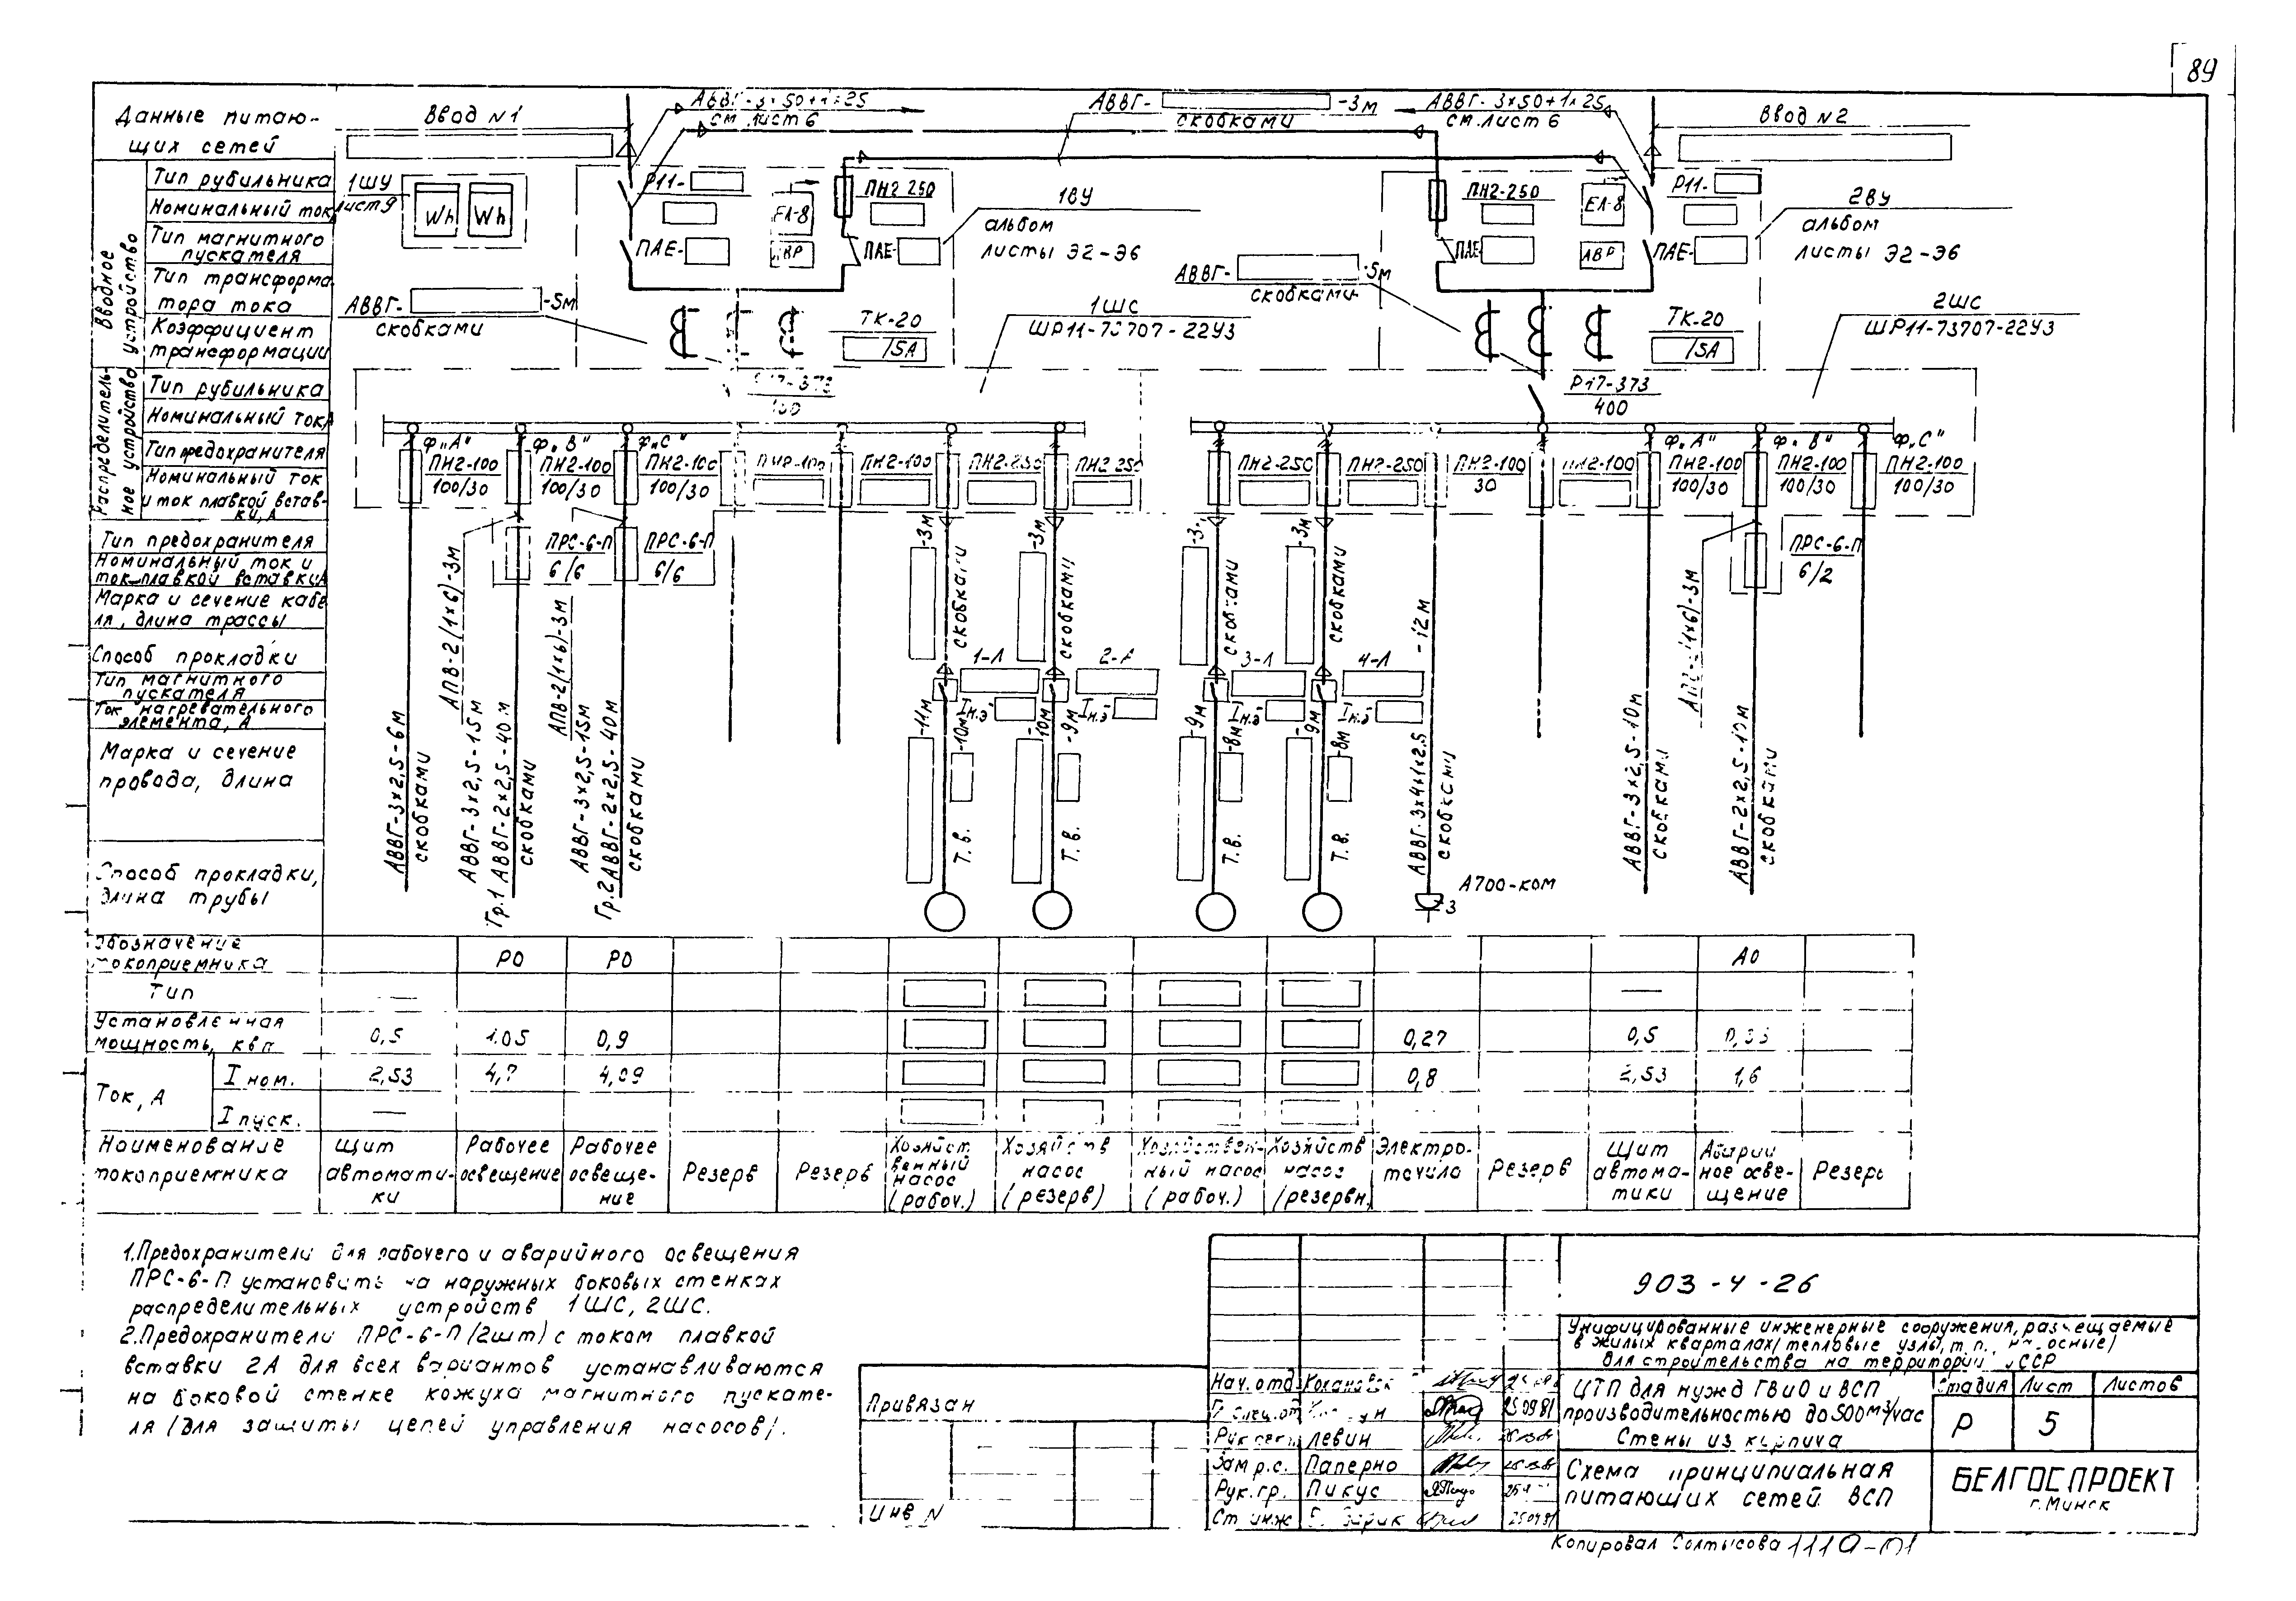 89
Данные питаю-
щих сетей
Ввод №1
АВВГ-3×50+1×25
см. лист 6
АВВГ-
-3м
скобками
АВВГ-3×50+1×25
см. лист 6
Ввод №2
Вводное устройство
Тип рубильника
Номинальный ток
Тип магнитного
пускателя
Тип трансформа-
тора тока
Коэффициент
трансформации
1ШУ
лист 9
Wh
Wh
Р11-
ЕЛ-8
ПН2-250
ПАЕ-
АВР
ПАЕ-
1ВУ
альбом
листы Э2-Э6
ПН2-250
ЕЛ-8
Р11-
ПАЕ-
АВР
ПАЕ-
2ВУ
альбом
листы Э2-Э6
АВВГ-
-5м
скобками
АВВГ-
-5м
скобками
ТК-20
/5А
1ШС
ШР11-73707-22У3
ТК-20
/5А
2ШС
ШР11-73707-22У3
Распределитель-
ное устройство
Тип рубильника
Номинальный ток, А
Тип предохранителя
Номинальный ток
и ток плавкой встав-
ки, А
Р17-373
400
Ф„А"
Ф„В"
Ф„С"
Ф„А"
Ф„В"
Ф„С"
ПН2-100
100/30
ПН2-100
100/30
ПН2-100
100/30
ПН2-100
ПН2-100
ПН2-250
ПН2-250
ПН2-250
ПН2-250
ПН2-100
30
ПН2-100
ПН2-100
100/30
ПН2-100
100/30
ПН2-100
100/30
Тип предохранителя
Номинальный ток и
ток плавкой вставки, А
Марка и сечение кабе-
ля, длина трассы
Способ прокладки
Тип магнитного
пускателя
Ток нагревательного
элемента, А
Марка и сечение
провода, длина
Способ прокладки,
длина трубы
ПРС-6-П
6/6
ПРС-6-П
6/6
ПРС-6-П
6/2
АВВГ-3×2,5-6м
скобками
АПВ-2(1×6)-3м
АВВГ-3×2,5-15м
Гр.1 АВВГ-2×2,5-40м
скобками
АПВ-2(1×6)-3м
АВВГ-3×2,5-15м
Гр.2 АВВГ-2×2,5-40м
скобками
-3м
скобками
1-Л
Iн.э
-11м
-10м
Т.В.
-3м
скобками
Iн.э
-10м
-9м
Т.В.
скобками
3-Л
Iн.э
-9м
-8м
Т.В.
-3м
скобками
4-Л
Iн.э
-9м
-8м
Т.В.
-12м
АВВГ-3×4+1×2,5
А700-КОМ
3
АВВГ-3×2,5-10м
скобками
АВВГ-2×2,5-10м
скобками
Обозначение
токоприемника
РО
РО
АО
Тип
—
—
Установленная
мощность, квт
0,5
1.05
0,9
0,27
0,5
Ток, А
I ном.
2,53
4,09
0,8
2,53
1,6
I пуск.
—
Наименование
токоприемника
Щит
автомати-
ки
Рабочее
освещение
Рабочее
освеще-
ние
Резерв
Резерв
Хозяйст
венный
насос
(рабоч.)
Хозяйств
насос
(резерв)
Хозяйствен-
ный насос
(рабоч.)
Хозяйств
насос
(резервн.
Электро-
точило
Резерв
Щит
автома-
тики
Аварий
ное осве-
щение
Резерв
1. Предохранители для рабочего и аварийного освещения
ПРС-6-П установить на наружных боковых стенках
распределительных устройств 1ШС, 2ШС.
2. Предохранители ПРС-6-П (2шт) с током плавкой
вставки 2А для всех вариантов устанавливаются
на боковой стенке кожуха магнитного пускате-
ля (для защиты цепей управления насосов).
Привязан
Инв №
903-4-26
Унифицированные инженерные сооружения, размещаемые
в жилых кварталах (тепловые узлы, т.п., насосные)
для строительства на территории СССР
Нач. отд.
Гл. спец. от
25 09 81
Левин
Зам р.с. Паперно
Рук. гр. Пикус
Ст. инж
ЦТП для нужд ГВиО и ВСП
производительностью до 500м³/час
Стены из кирпича
Стадия Лист Листов
Р 5
Схема принципиальная
питающих сетей ВСП
БЕЛГОСПРОЕКТ
г. Минск
Копировал Солтысова